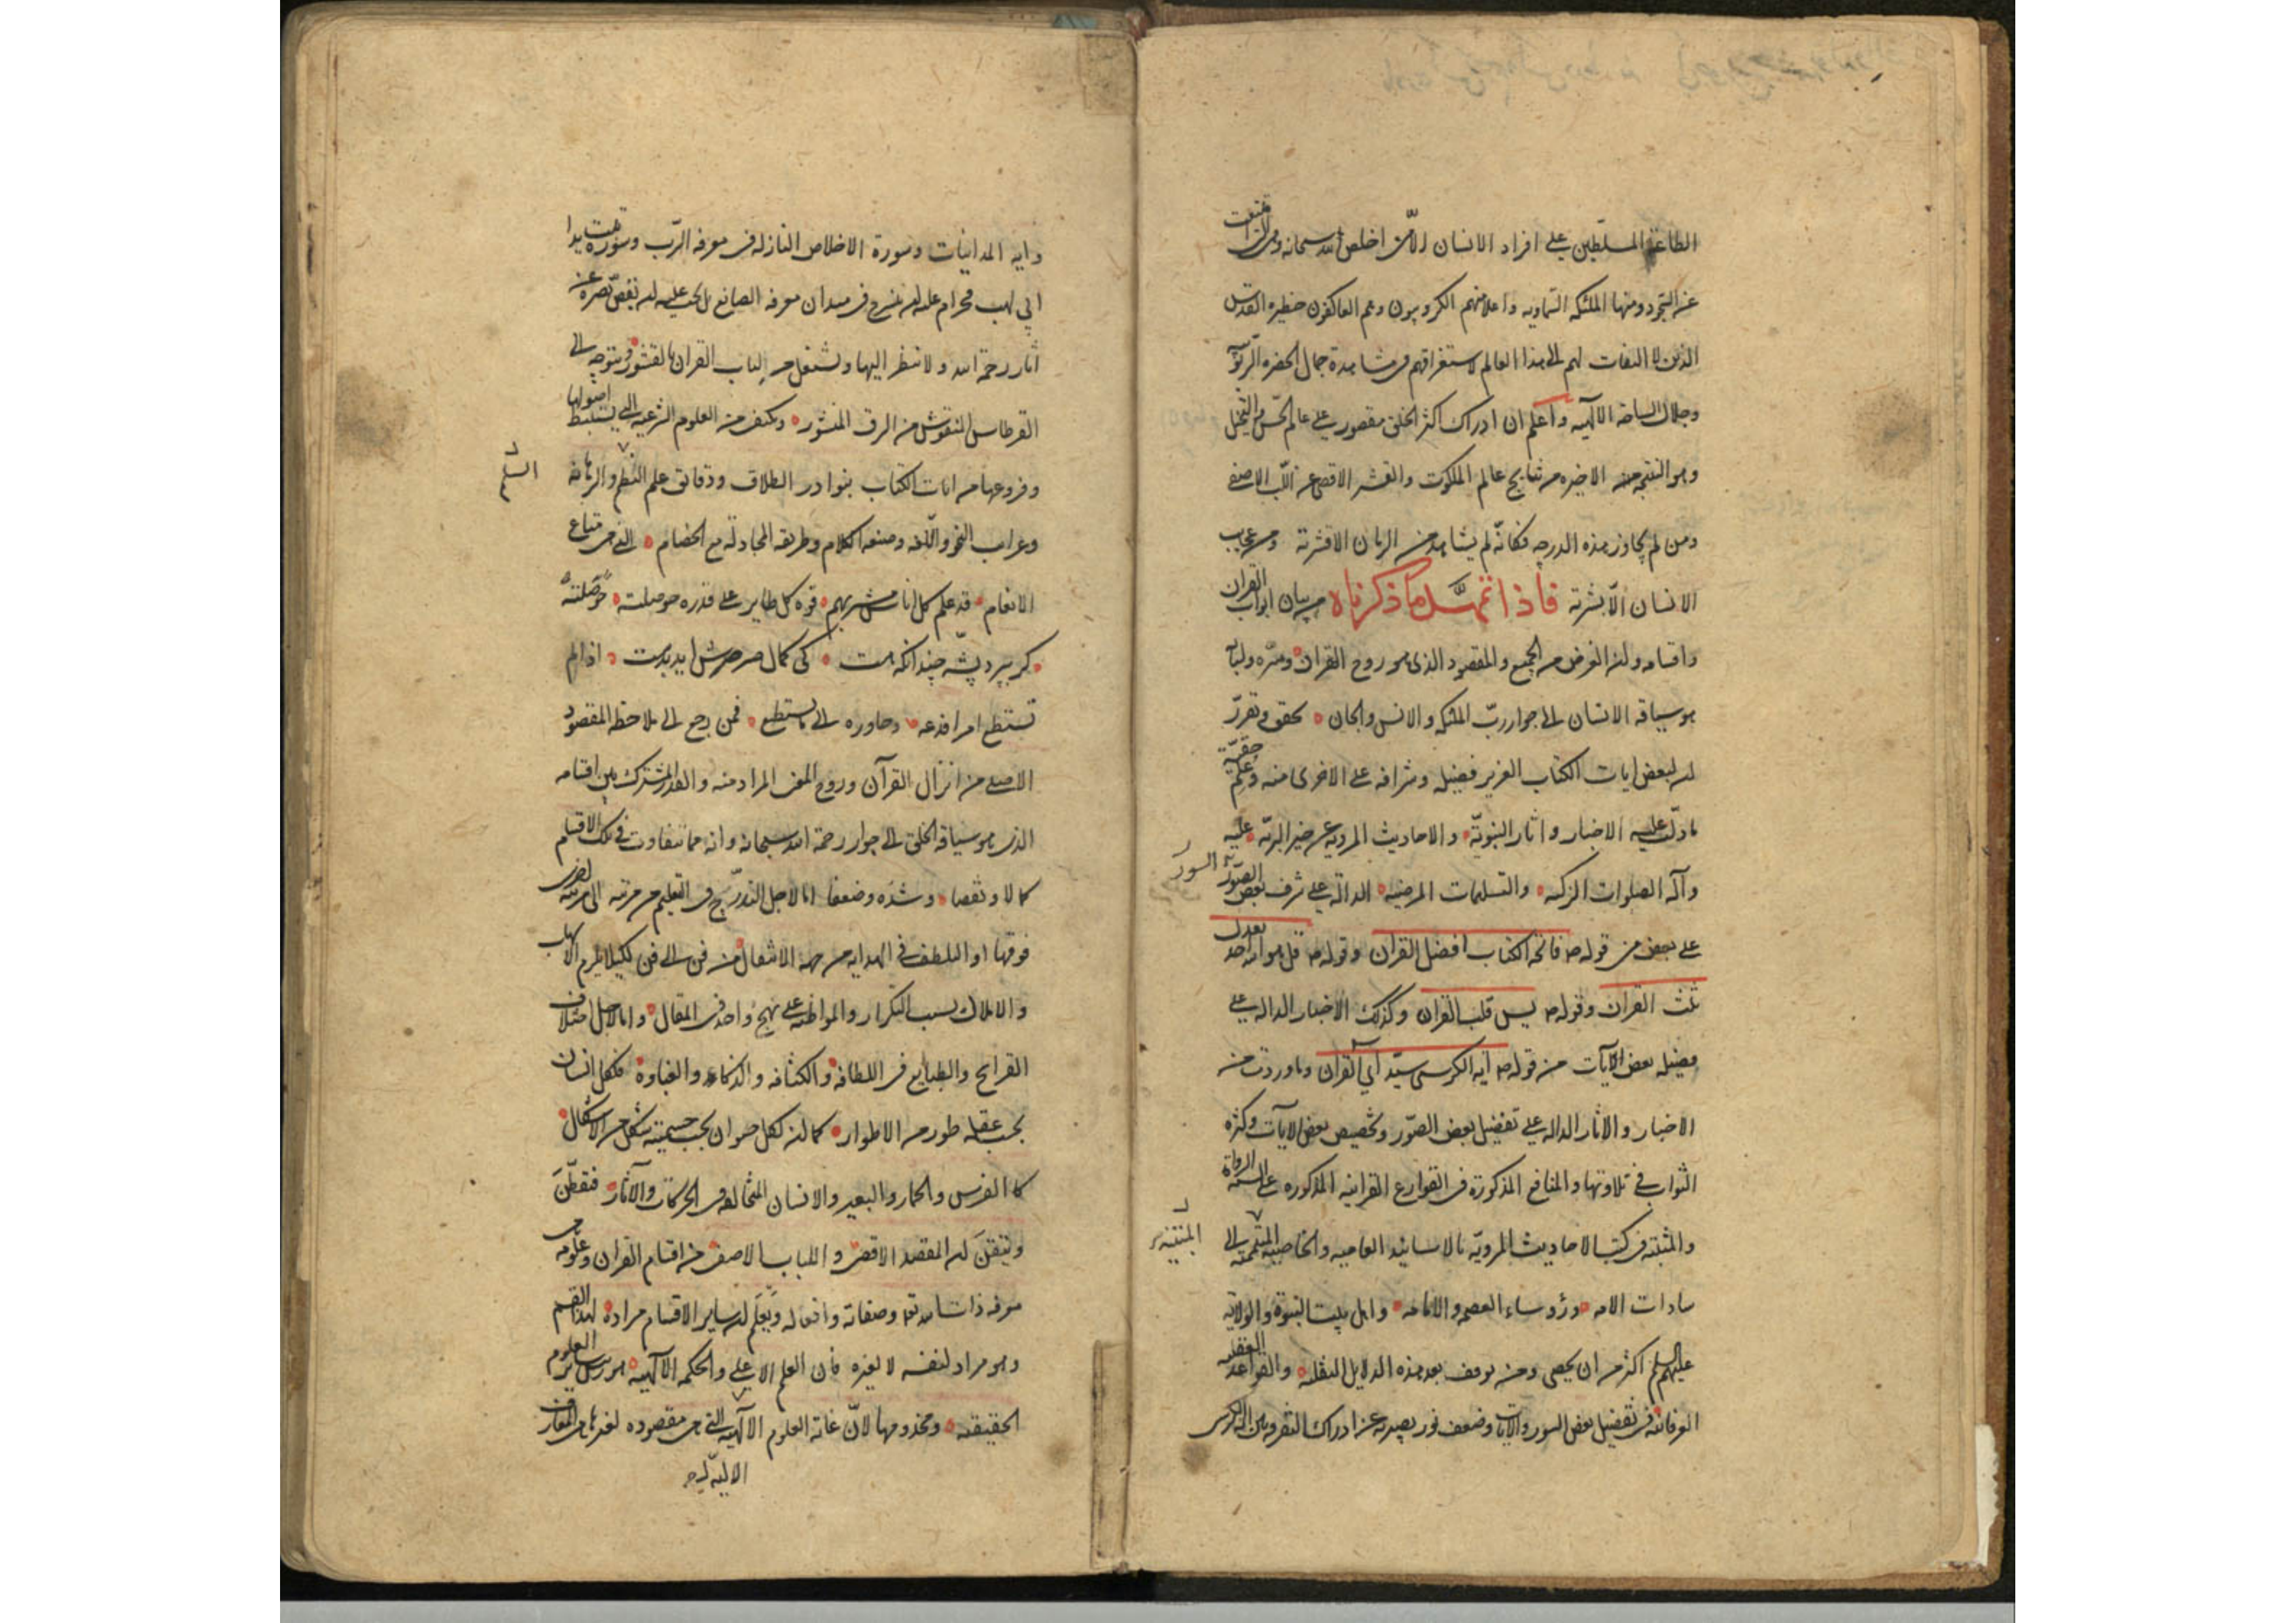 الطاغية المسلطين على افراد الانسان الا من اخلص لله سبحانه
عن التجرد ومنها الملئكة السماوية واعلامنهم الكروبيون وهم العاكفون حظيرة القدس
الذين لا التفات لهم الى هذا العالم لاستغراقهم فى مشاهدة جمال الحضرة الربوبية
وجلال الساحة الالهية واعلم ان ادراك اكثر الخلق مقصور على عالم الحس والتخيل
وهو النتيجة الاخيرة من نتايج عالم الملكوت والقشر الاقصى عن اللب الاصفى
ومن لم يجاوز هذه الدرجة فكانه لم يشاهد من الرمان الا قشرته ومن عجايب
الانسان الا بشرته فاذا تمهد ما ذكرناه من بيان ابواب القران
واقسامه وان الغرض من الجميع والمقصود الذى هو روح القران وسره ولبابه
هو سياقة الانسان الى جوار رب الملئكة والانس والجان تحقق وتقرر
ان لبعض ايات الكتاب العزيز فضيلة وشرافة على الاخرى منه وعلم حقية
ما دلت عليه الاخبار واثار النبوية والاحاديث المروية عن خير البرية عليه
وآله الصلوات الزكية والتسليمات المرضية الدالة على شرف بعض الصور
السور
على بعض من قوله ص فاتحة الكتاب افضل القران وقوله ص قل هو الله احد يعدل
ثلث القران وقوله ص يس قلب القران وكذلك الاخبار الدالة على
فضيلة بعض الآيات من قوله ص اية الكرسى سيد آى القران وما وردت من
الاخبار والاثار الدالة على تفضيل بعض الصور وتخصيص بعض الآيات وكثرة
الثواب فى تلاوتها والمنافع المذكورة فى القوارع القرانية المذكورة على السنة الرواة
والمثبتة فى كتب الاحاديث المروية بالاسانيد العامية والخاصية المنتمية الى
سادات الامة ورؤساء العصمة والامامة واهل بيت النبوة والولاية
عليهم السلم اكثر من ان يحصى ومن توقف بعد هذه الدلايل النقلية والقواعد العقلية
العرفانية فى تفضيل بعض السور والآيات وضعف نور بصيرته عن ادراك التفرقة بين آية الكرسى
واية المداينات وسورة الاخلاص النازلة فى معرفة الرب وسورة تبت يدا
ابى لهب فحرام عليه ان يسرح فى ميدان معرفة الصانع بل يجب عليه ان يغض بصره عن
اثار رحمة الله ولا ينظر اليها ويشتغل من لباب القران بالقشور ويتوجه الى
القرطاس المنقوش من الرق المنشور ويكتف من العلوم الشرعية التى يستنبط اصولها
وفروعها من ايات الكتاب بنوادر الطلاق ودقايق علم النظم والرهانة
السلم
وغرايب النحو واللغة وصنعة الكلام وطريقة المجادلة مع الخصام التى هى متاع
الانعام قد علم كل اناس مشربهم قوة كل طاير على قدره حوصلته
كر بپرد پشه چندانكه هست كى كمال صرصرش آيد بدست اذا لم
تستطع امرا فدعه وجاوزه الى ما تستطيع فمن رجع الى ملاحظة المقصود
الاصلى من انزال القرآن وروح المعنى المراد منه والقدر المشترك بين اقسامه
الذى هو سياقة الخلق الى جوار رحمة الله سبحانه وانه مما يتفاوت فى تلك الاقسام
كمالا ونقصا وشدة وضعفا اما لاجل التدرج فى التعليم من مرتبة الى مرتبة اخرى
فوقها او التلطف فى الهداية من جهة الانتقال من فن الى فن لكيلا يلزم
والاملال بسبب التكرار والمواظبة على نهج واحد فى المقال واما لاجل اختلاف
القرايح والطبايع فى اللطافة والكثافة والذكاء والغباوة فلكل انسان
بحسب عقله طور من الاطوار كما ان لكل حيوان بحسب جسميته شكل من الاشكال
كالفرس والحمار والبعير والانسان المتخالفة فى الحركات والآثار فتفطن
وتيقن ان المقصد الاقصى واللباب الاصفى من اقسام القران وعلومه هى
معرفة ذات الله تع وصفاته وافعاله ويعلم ان ساير الاقسام مرادة لهذا القسم
وهو مراد لنفسه لا لغيره فان العلم الاعلى والحكمة الالهية هو رييس ساير العلوم
الحقيقية ومخدومها لان غاية العلوم الآلهية التى هى مقصوده لغيرها هى المعارف
الالهية